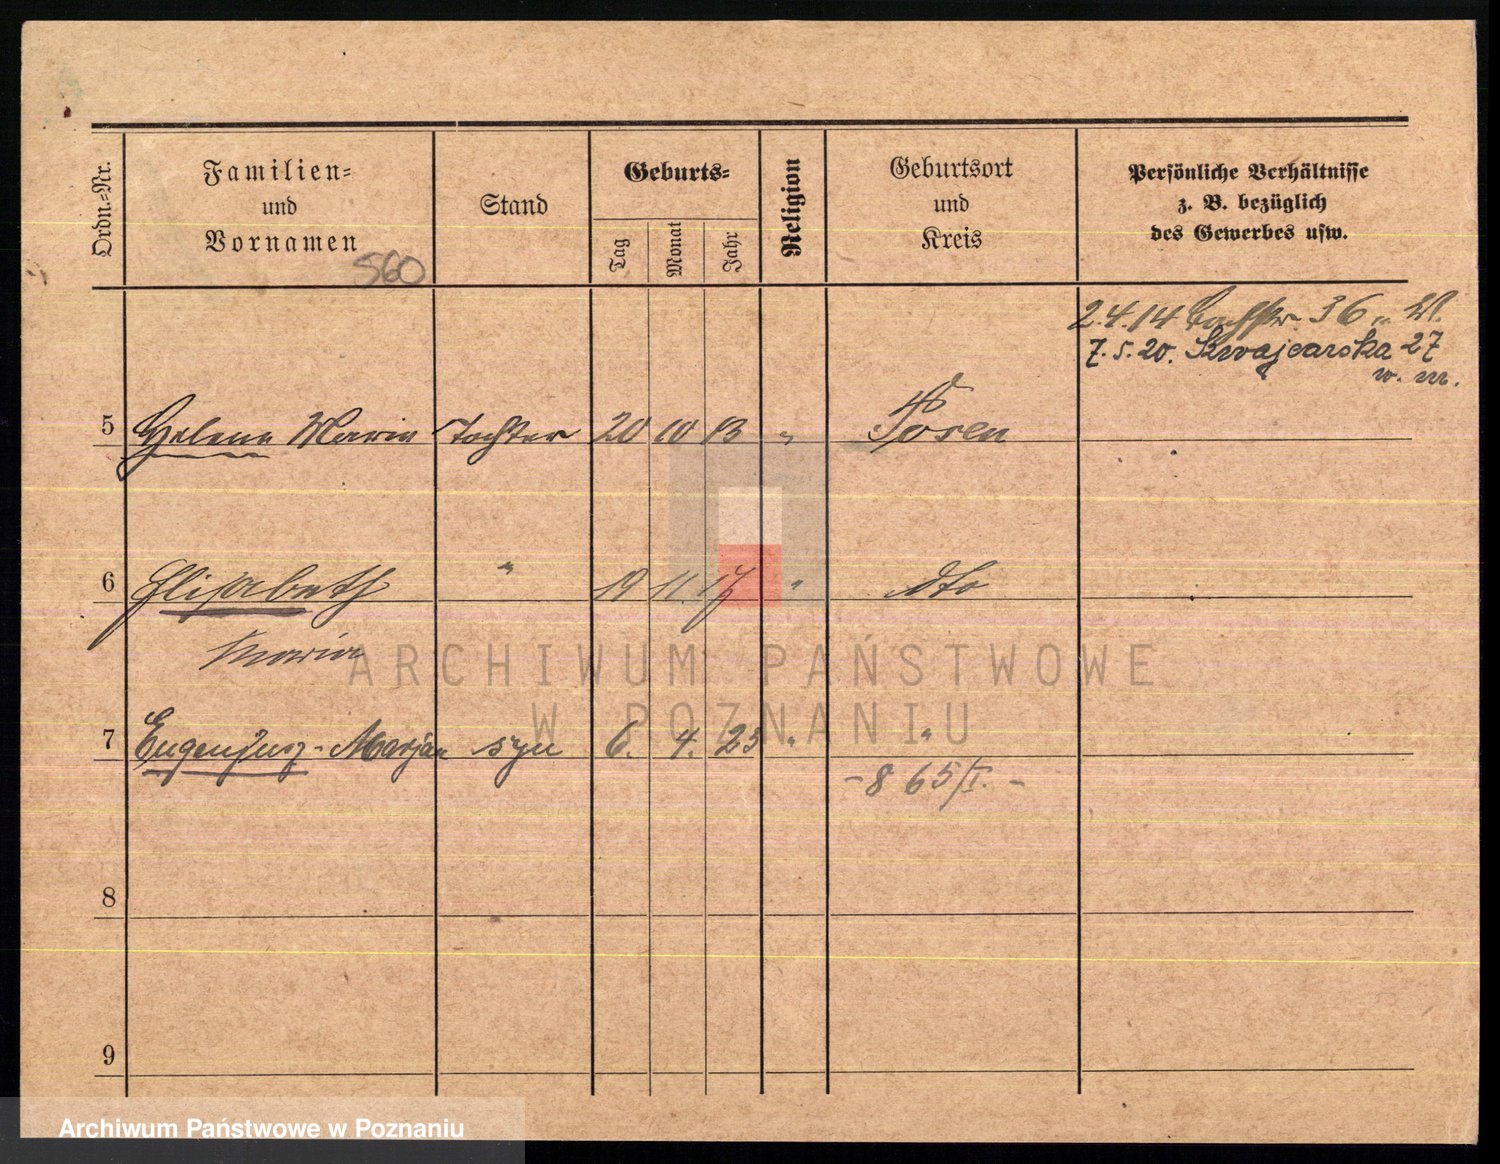 Ordn.-Nr.
Familien-
und
Vornamen
560
Stand
Geburts-
Tag
Monat
Jahr
Religion
Geburtsort
und
Kreis
Persönliche Verhältnisse
z. B. bezüglich
des Gewerbes usw.
2.4.14 36 W.
7.5.20. Szwajcarska 27
w. m.
5 Helene Marie Tochter 20 10 13 " Posen
6 Elisabeth " 19 11. 17 " dto
Maria
7 Eugenjusz-Marjan syn 6. 4. 23 " "
- 8 65/I. -
8
9
ARCHIWUM PAŃSTWOWE
W POZNANIU
Archiwum Państwowe w Poznaniu